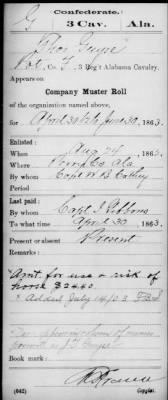 Confederate.
G 3 Cav. Ala.
Thos Guyse
Pvt, Co. F, 3 Reg't Alabama Cavalry.
Appears on
Company Muster Roll
of the organization named above,
for April 30 to June 30, 1863.
Enlisted:
When Aug 24, 186
Where Perry Co Ala.
By whom Capt W B
Period
Last paid:
By whom Capt J
To what time April 30, 1863
Present or absent Present
Remarks:
Amt for use & risk of
horse
Added July
Book mark:
(642) Copyist.